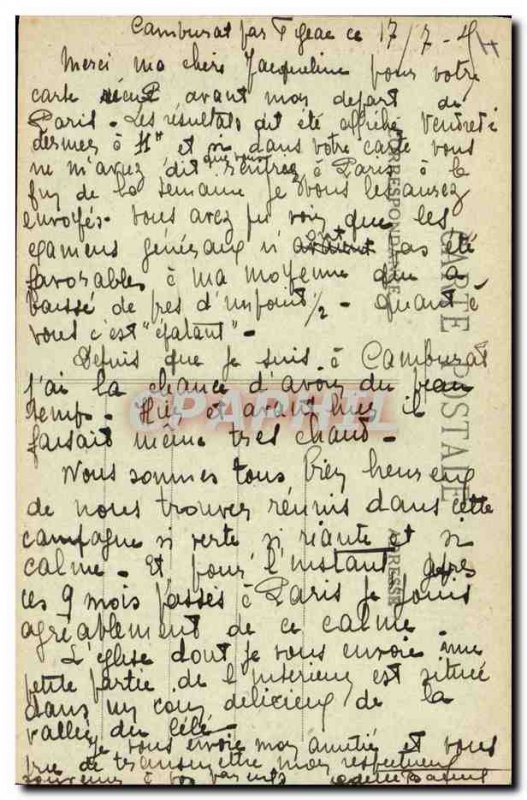 Camburat par Figeac ce 17/7-
Merci ma chère Jacqueline pour votre
carte reçue avant mon départ de
Paris - Les résultats ont été affichés Vendredi
dernier à H" et si dans votre carte vous
ne m'avez dit que vous rentrez à Paris à la
fin de la semaine je vous les aurez
envoyés - Vous avez pu voir que les
examens généraux n'ont pas été
favorables à ma moyenne qui a
baissé de près d'un point 1/2 - Quant à
vous c'est "épatant" -
Depuis que je suis à Camburat
j'ai la chance d'avoir du beau
temps - Hier et avant hier il
faisait même très chaud -
Nous sommes tous bien heureux
de nous trouver réunis dans cette
campagne si verte si riante et si
calme - Et pour l'instant après
ces 9 mois passés à Paris je jouis
agréablement de ce calme -
L'église dont je vous envoie une
petite partie de l'intérieur est située
dans un coin délicieux de la
vallée du Célé -
Je vous envoie mon amitié et vous
prie de transmettre mon respectueux
souvenir à vos parents
CARTE POSTALE
CORRESPONDANCE
ADRESSE
CPAPHIL